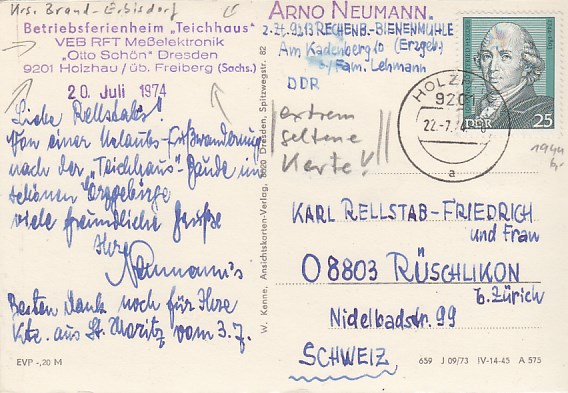 Krs. Brand-Erbisdorf
Betriebsferienheim „Teichhaus"
VEB RFT Meßelektronik
„Otto Schön" Dresden
9201 Holzhau / üb. Freiberg (Sachs.)
20. Juli 1974
Liebe Rellstabs!
Von einer Urlaubs-Fußwanderung
nach der „Teichhaus"-Baude im
schönen Erzgebirge
viele freundliche Grüße
Ihre
Neumann's
Besten Dank noch für Ihre
Kte. aus St. Moritz vom 3.7.
EVP -,20 M
W. Kenne, Ansichtskarten-Verlag, 8020 Dresden, Spitzwegstr. 82
ARNO NEUMANN
z. Zt. 9213 RECHENB.-BIENENMÜHLE
Am Kadenberg 10 (Erzgeb.)
b/Fam. Lehmann
DDR
extrem
seltene
Karte!
9201
22.-7.74
a
DDR 25
1944
KARL RELLSTAB-FRIEDRICH
und Frau
08803 RÜSCHLIKON
b. Zürich
Nidelbadstr. 99
SCHWEIZ
659 J 09/73 IV-14-45 A 575